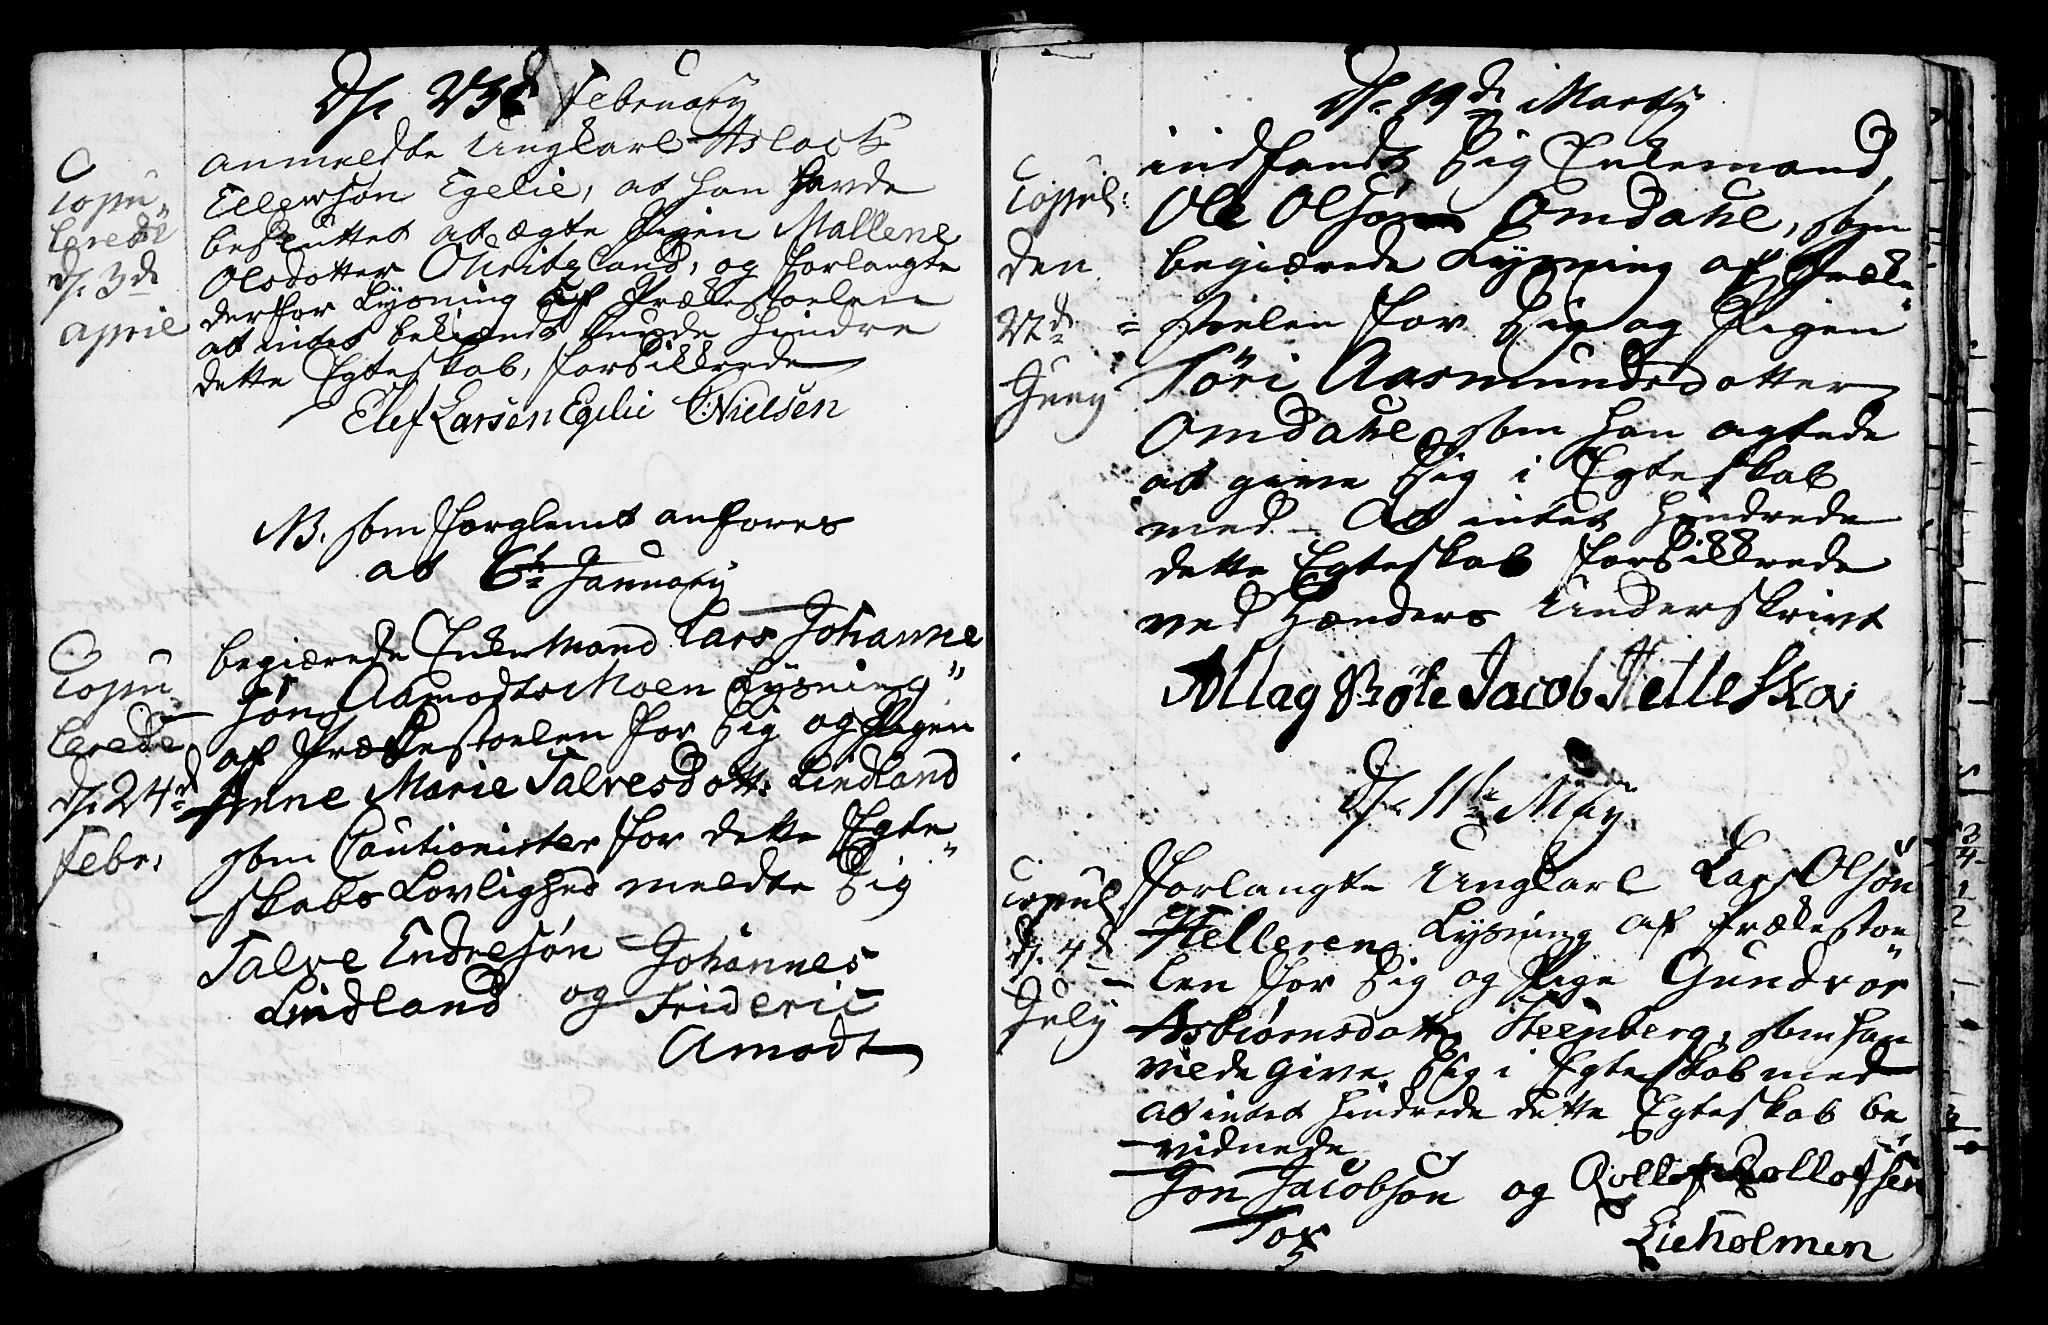 D. 23d February
Copu-
lerede
d. 3de
April
anmeldte Ungkarl Aslack
Ellewsøn Egelie, at han havde
besluttet at ægte Pigen Mallene
Olsdotter, og forlangte
derfor Lysning af Prækestoelen
at intet bekiendt kunde hindre
dette Egteskab, forsikkrede
Elef Larsen Egelie C: Nielsen
NB. som forglemt anføres
at 6te January
Copu-
lerede
d. 24d
Febr:
begiærede Enkemand Lars Johanne-
søn Aamodts Moen Lysning
af Prækestoelen for Sig og Pigen
Anne Marie Talresdott: Lindland
som Cautionister for dette Egte-
-skabs Lovlighed meldte Sig
Talre Endresøn Johannes
Lindland og Frideric
Amodt
D. 19de Marty
Copul:
den
22de
Juny
indfandt Sig Enkemand
Ole Olsøn Omdahl, som
begiærede Lysning af Præke-
= stoelen for Sig og Pigen
Töri Aasmundsdotter
Omdahl, som han agtede
at give Sig i Egteskab
med. At intet hindrede
dette Egteskab forsikkrede
ved Hænders Underskrivt
Allag Bröte Jacob Helleskai
D. 11te May
Copul.
d. 4d
July
forlangte Ungkarl Lars Olsøn
Helleren Lysning af Prækestoe-
len for Sig og Pige Gundvor
Asbiørnsdott: Steenberg, som han
vilde give Sig i Egteskab med
at intet hindrede dette Egteskab be-
-vidnede
Jon Jacobsøn og Rollef Rollefsen
Tox
Lieholmen